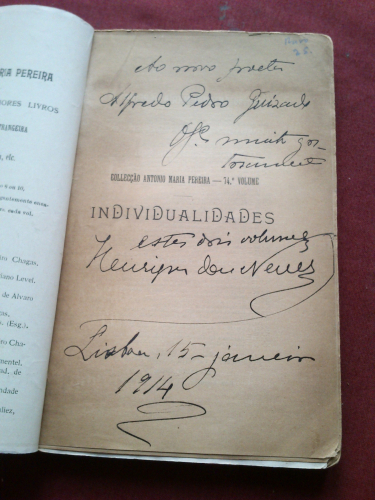 RIA PEREIRA
ORES LIVROS
TRANGEIRA
etc.
e em 8º,
cada vol.
ro Chagas.
iano Level.
de Alvaro
s. (Esg.).
ro Cha-
mentel.
ad. de
ndade
Ao novo poeta
Alfredo Pedro Guisado
Of.ce muito gos-
tosamente
COLLECÇÃO ANTONIO MARIA PEREIRA — 74.º VOLUME
INDIVIDUALIDADES
estes dois volumes
Henrique das Neves
Lisboa, 15-janeiro
1914